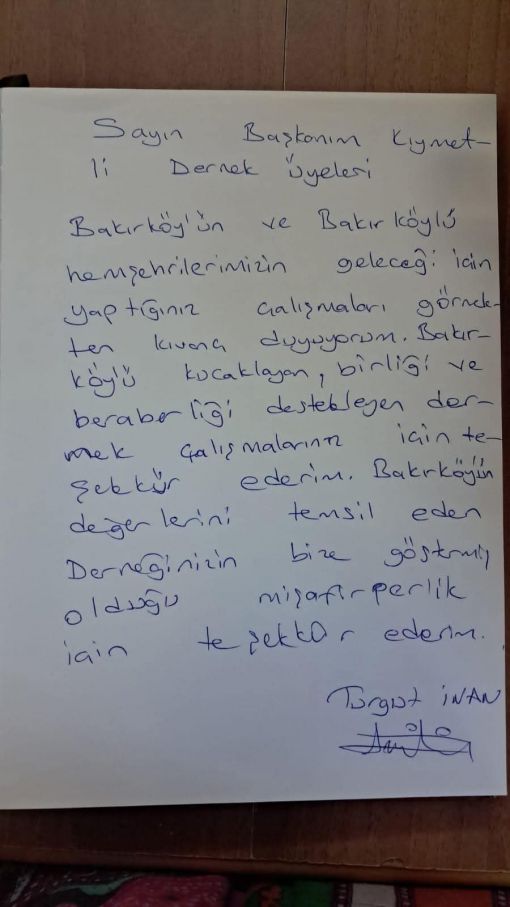 Sayın Başkanım Kıymet-
li Dernek üyeleri
Bakırköy'ün ve Bakırköylü
hemşehrilerimizin geleceği için
yaptığınız çalışmaları görmek-
ten kıvanç duyuyorum. Bakır-
köylü kucaklayan, birliği ve
beraberliği destekleyen der-
nek çalışmalarının için te-
şekkür ederim. Bakırköyün
değerlerini temsil eden
Derneğinizin bize göstermiş
olduğu misafirperlik
için teşekkür ederim.
Turgut İNAN